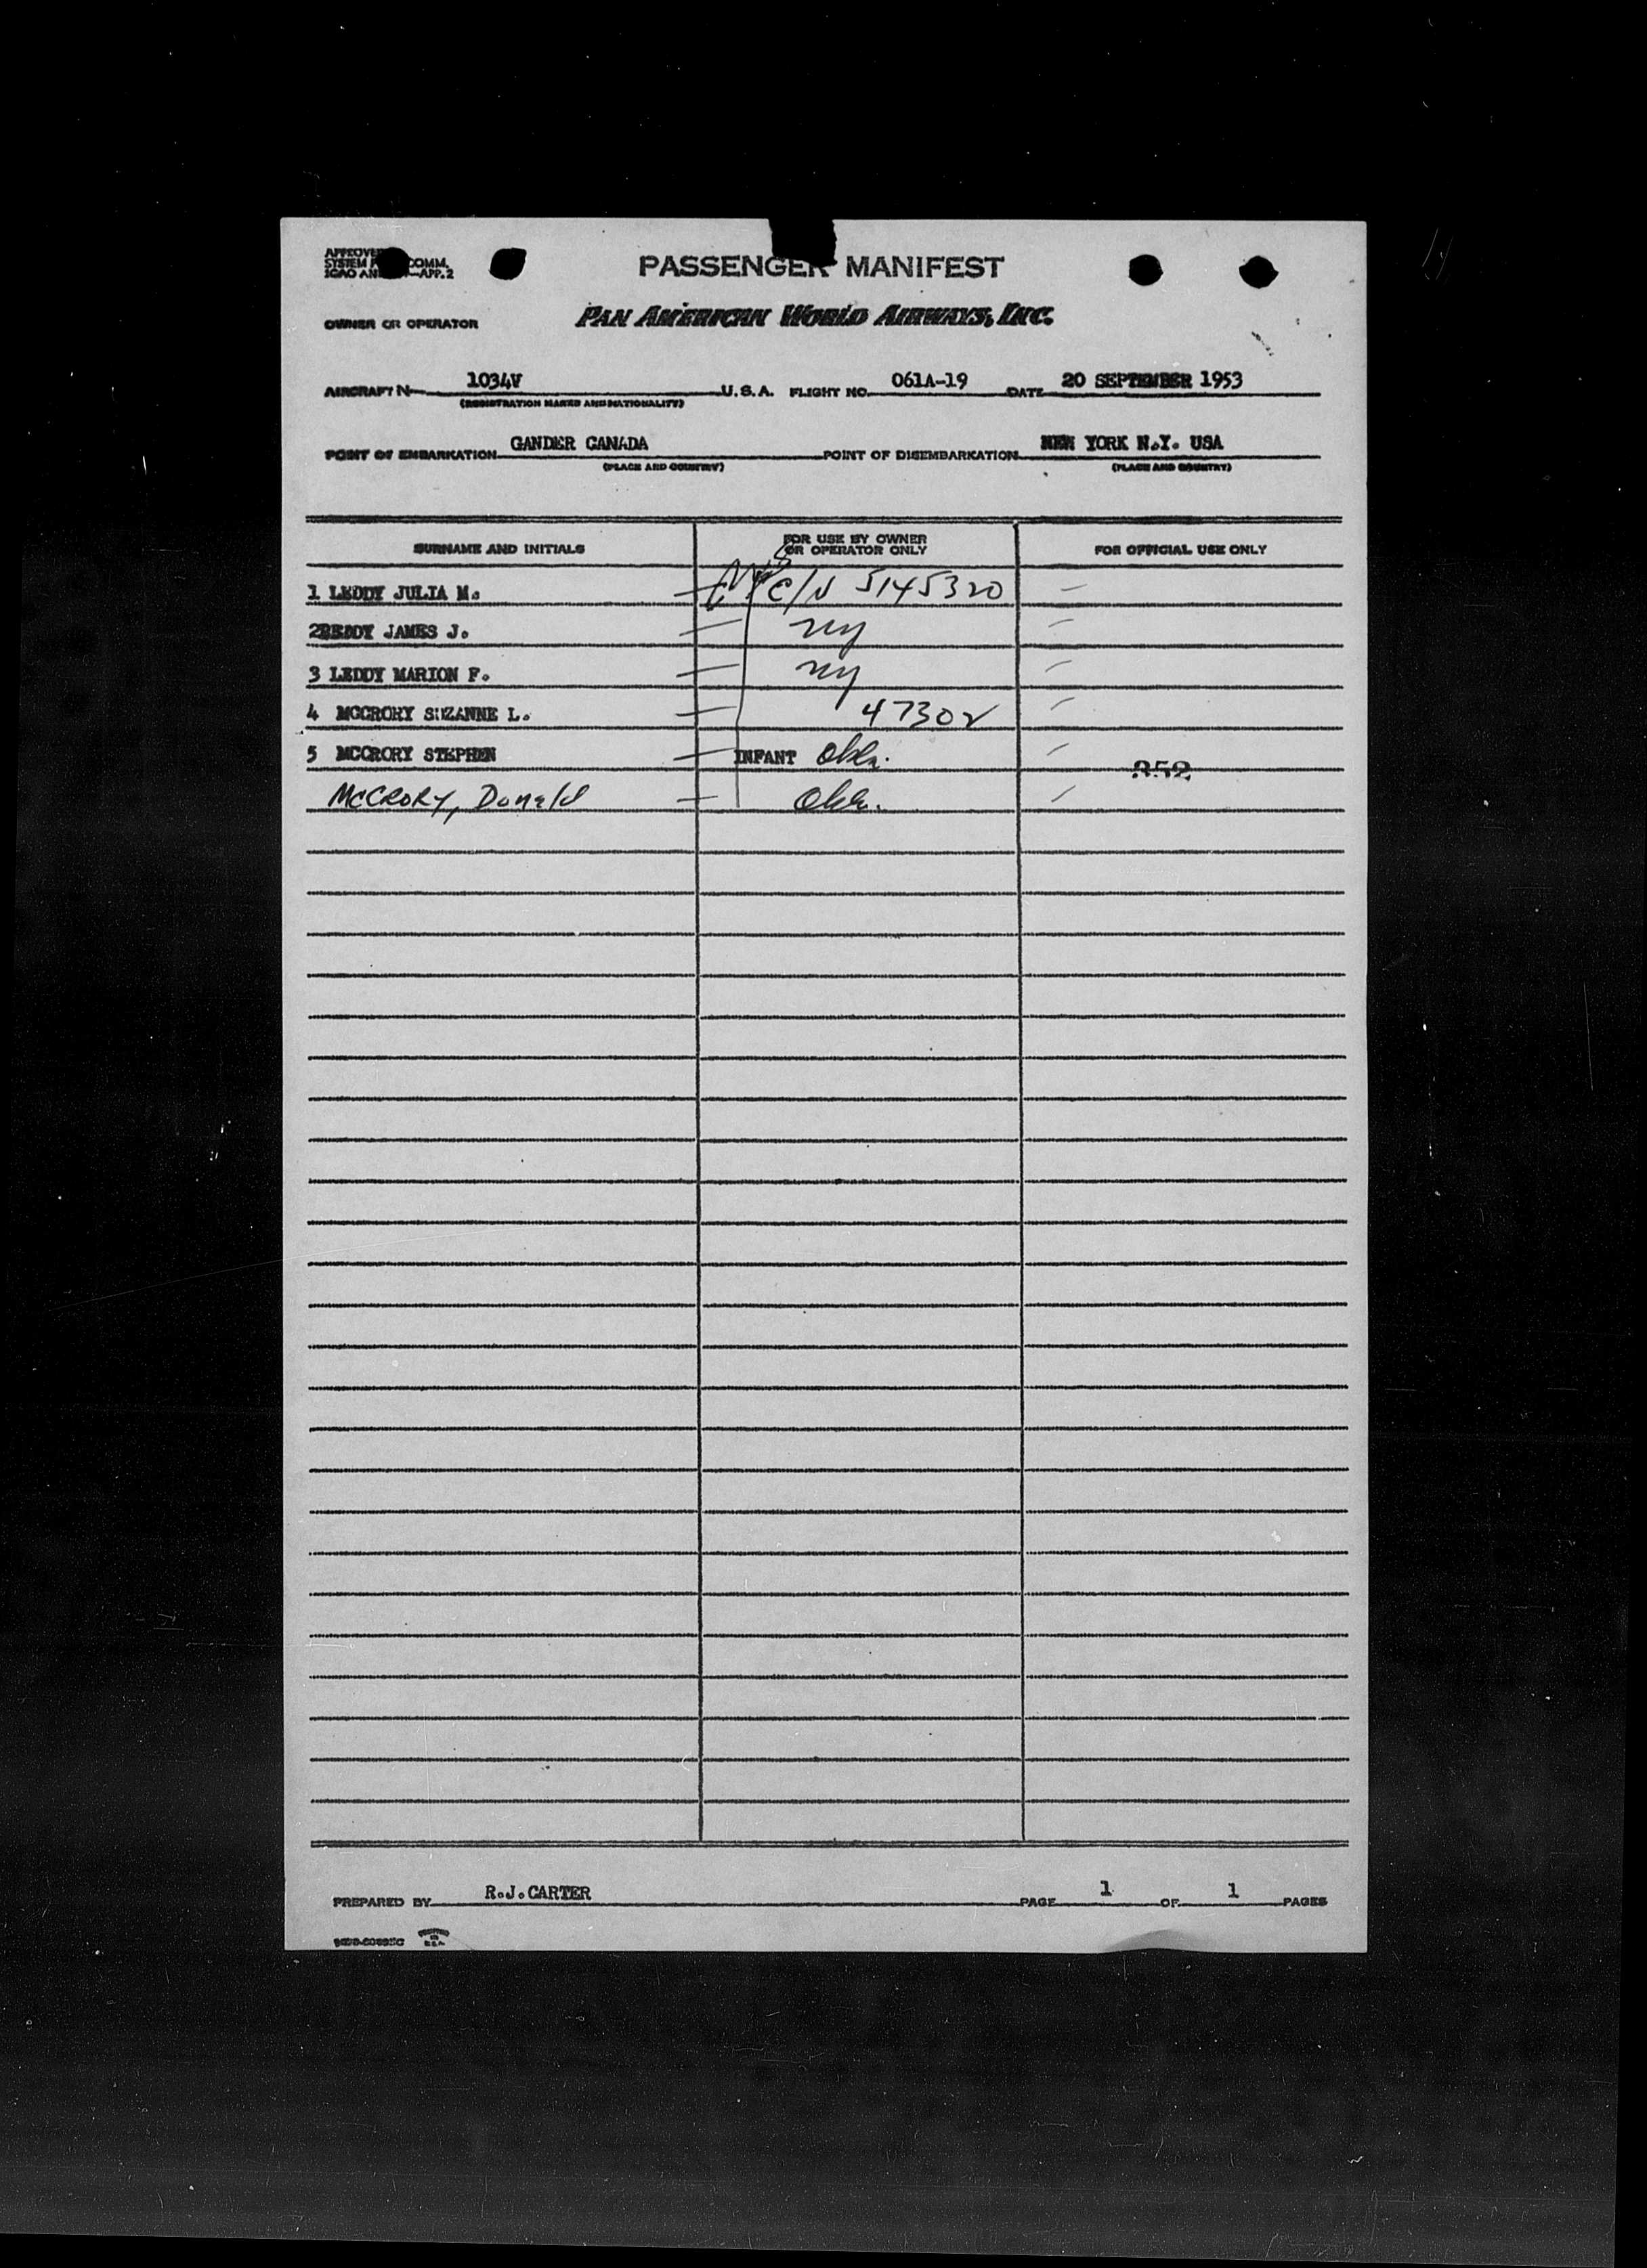 APPROVED
SYSTEM COMM.
ICAO AN —APP. 2
PASSENGER MANIFEST
OWNER OR OPERATOR PAN AMERICAN WORLD AIRWAYS, INC.
AIRCRAFT N 1034V U.S.A. FLIGHT NO. 061A-19 DATE 20 SEPTEMBER 1953
(REGISTRATION MARKS AND NATIONALITY)
POINT OF EMBARKATION GANDER CANADA POINT OF DISEMBARKATION NEW YORK N.Y. USA
(PLACE AND COUNTRY) (PLACE AND COUNTRY)
SURNAME AND INITIALS FOR USE BY OWNER OR OPERATOR ONLY FOR OFFICIAL USE ONLY
1 LEDDY JULIA M. — C/N 5145320 —
2 LEDDY JAMES J. — NY —
3 LEDDY MARION F. — NY —
4 MCCRORY SUZANNE L. — 47302 —
5 MCCRORY STEPHEN — INFANT Okla. —
352
McCRORY, Donald — Okla. —
PREPARED BY R.J.CARTER PAGE 1 OF 1 PAGES
PRINTED IN U.S.A.